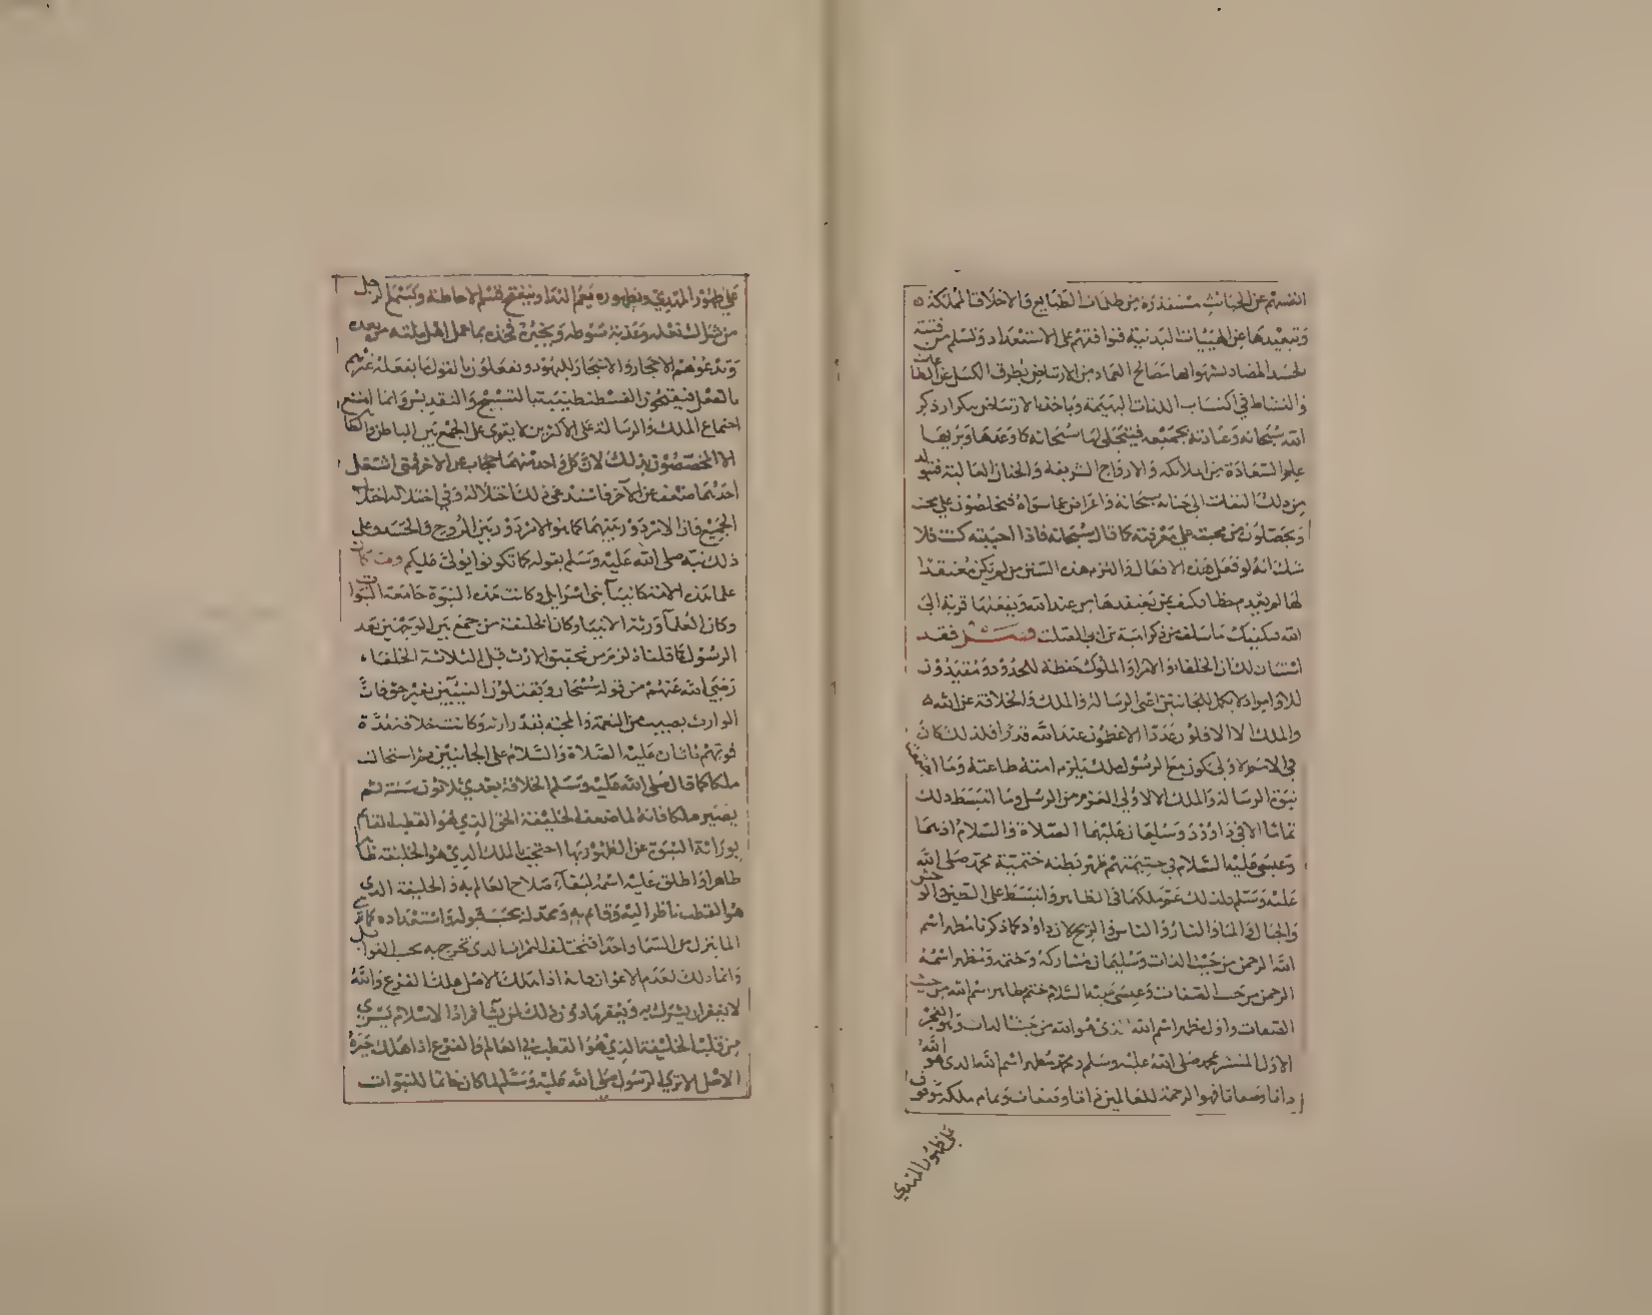 انفسهم عن الخبائث مستقذرة من ظلمات الطبايع والاخلاق المهلكة
وتبعيدها عن الهيئات البدنية فتوافقهم على الاستعداد وتسلم من فتنة
الجسد المضاد بشهواتها مصالح المعاد من الارتياض بطرف الكسل عن الطاعات
والنشاط في اكتساب اللذات البهيمة وياخذها لارتياض بتكرار ذكر
الله سبحانه وعبادته بجميعه فيتجلى لها سبحانه كما وعدها ويريها
علو السعادة من الملائكة والارواح الشريفة والجنان العالية فتتولد
من ذلك التفات الى جنابه سبحانه واعراض عما سواه فتخلصون على محبته
ويحصلون من محبته على معرفته كما قال سبحانه فاذا احببته كنت فلا
شك انه لو فعل هذه الافعال والتزم هذه السنن من لم يكن معتقدا
لها لم يعدم حظا فكيف بمن يعتقدها من عند الله ويفعلها قربة الى
الله يكفيك ما سلف من ذكر امية بن ابي الصلت فصل فقد
استبان لك ان الخلفاء والامراء والملوك حفظة للحدود ومقيدون
للاوامر ولا يكمل للجانبين اعني الرسالة والملك والخلافة عن الله
والملك لا الاقلون عددا الاعظمون عند الله قدرا فلذلك كان
في الاسوة ولى يكون مع الرسول ملك يلزم امته طاعته وما
نبوة الرسالة والملك الا لاولي العزم من الرسل وما انبسط ذلك
تماما الا في داوود وسليمان عليهما الصلاة والسلام اذ هما
وعيسى عليه السلام في حيثيتهم ظهر نطفة ختمية محمد صلى الله
عليه وسلم فلذلك عمر ملكهما في الظاهر وانبسط على الطير والوحش
والجبال والماء والنار والناس والريح كان داود كما ذكرنا مظهر اسم
الله الرحمن من حيث الذات وسليمان مشاركه وختمه ومظهر اسمه
الرحمن من حيث الصفات وعيسى عليه السلام ختم مظاهر اسم الله من حيث
الصفات واول مظهر اسم الله الذي هو الله من حيث الذات وهو الفجر
الاول المنتشر بمحمد صلى الله عليه وسلم ومحمد مظهر اسم الله الذي هو الله
ذاتا وصفاتا فهو الرحمة للعالمين ذاتا وصفات وتمام ملكه موقوف
على ظهور المهدي
على ظهور المهدي وبظهوره يعم الندا ويتفتح قسم الاحاطة ويشمل الرجل
من شراك نعله وعذبة سوطه ويخبره فخذه بما عمل اهل ملته من بعده
وتدعوهم الاحجار والاشجار لليهود ويفعلون بالقول ما يفعله غيرهم
بالفعل فيفتحون القسطنطينية بالتسبيح والتقديس وانما امتنع
اجتماع الملك والرسالة على الاكثرين لا يقوى على الجمع بين الباطن والظاهر
الا المخصصون بذلك لان كل واحد منهما حجاب عن الاخر فمتى اشتغل
احدهما ضعف عن الآخر فاستدعى ذلك اختلاله وفي اختلاله اختلال
الجميع فان الامر دور بينهما كما هو الامر دور بين الروح والجسد وعلى
ذلك نبه صلى الله عليه وسلم بقوله كما تكونوا يولى عليكم ومن كان
علماء هذه الامة كانبيآ بني اسرايل وكانت هذه النبوة جامعة النبوات
وكان العلمآ ورثة الانبيا وكان الخليفة من جمع بين الوجهين بعد
الرسول كما قلنا لزم من تحقيق الارث قبل الثلاثة الخلفاء
رضي الله عنهم من قوله سبحانه ويقتلون النبيين بغير حق فان
الوارث يصيب من النعمة والمحنة بقدر ارثه وكانت خلافة مدة
نوبتهم بانبان عليه الصلاة والسلام على الجانبين ثم استحالت
ملكا كما قال صلى الله عليه وسلم الخلافة بعدي ثلاثون سنة ثم
يصير ملكا فانه لما ضعف الخليفة الحق الذي هو القطب القائم
بوراثة النبوة عن الظهور بها احتجب بالملك الذي هو الخليفة
ظاهرا واطلق عليه اسمه لبقآء صلاح العالم به ذ الخليفة الذي
هو القطب ناظر اليه وقائم به وممد له بحسب قبوله واستعداده كما ترى
الما ينزل من السما واحدا فتختلف الثمرات الذي تخرج به بحسب القوابل
وانما ذلك لعدم الاعوان فانه اذا هلك الاصل هلك الفرع والله
لا يغفر ان يشرك به ويغفر ما دون ذلك لمن يشآ فمراد الاسلام يسري
من قلب الخليفة الذي هو القطب في العالم والفرع اذا هلك جبره
الاصل الا ترى الرسول صلى الله عليه وسلم لما كان خاتما للنبوات